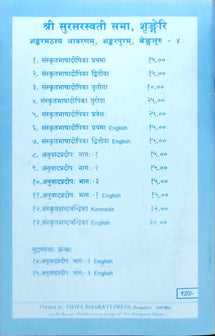 श्री सुरसरस्वती सभा, शृङ्गेरि
शङ्करमठस्य आवरणम्, शङ्करपुरम्, बेङ्गलूरु - ४
१. संस्कृतभाषादीपिका प्रथमा १५.००
२. संस्कृतभाषादीपिका द्वितीया १५.००
३. संस्कृतभाषादीपिका तृतीया १०.००
४. संस्कृतभाषादीपिका तुरीया २५.००
५. संस्कृतभाषादीपिका प्रवेशः २५.००
६. संस्कृतभाषादीपिका प्रथमा English १५.००
७. संस्कृतभाषादीपिका द्वितीया English १५.००
८. अनुवादप्रदीपः भागः-१ १५.००
९. अनुवादप्रदीपः भागः-२ १५.००
१०.अनुवादप्रदीपः भागः-३ १५.००
११.अनुवादप्रदीपः भागः-१ English १५.००
१२.संस्कृतशब्दचन्द्रिका Kannada ३२.००
१३.संस्कृतशब्दचन्द्रिका English ३०.००
मुद्रणस्थाः ग्रन्थाः
१४.अनुवादप्रदीपः भागः-२ English
१५.अनुवादप्रदीपः भागः-३ English
₹20/-
Printed at : VIDYA BHARATI PRESS, Bangalore